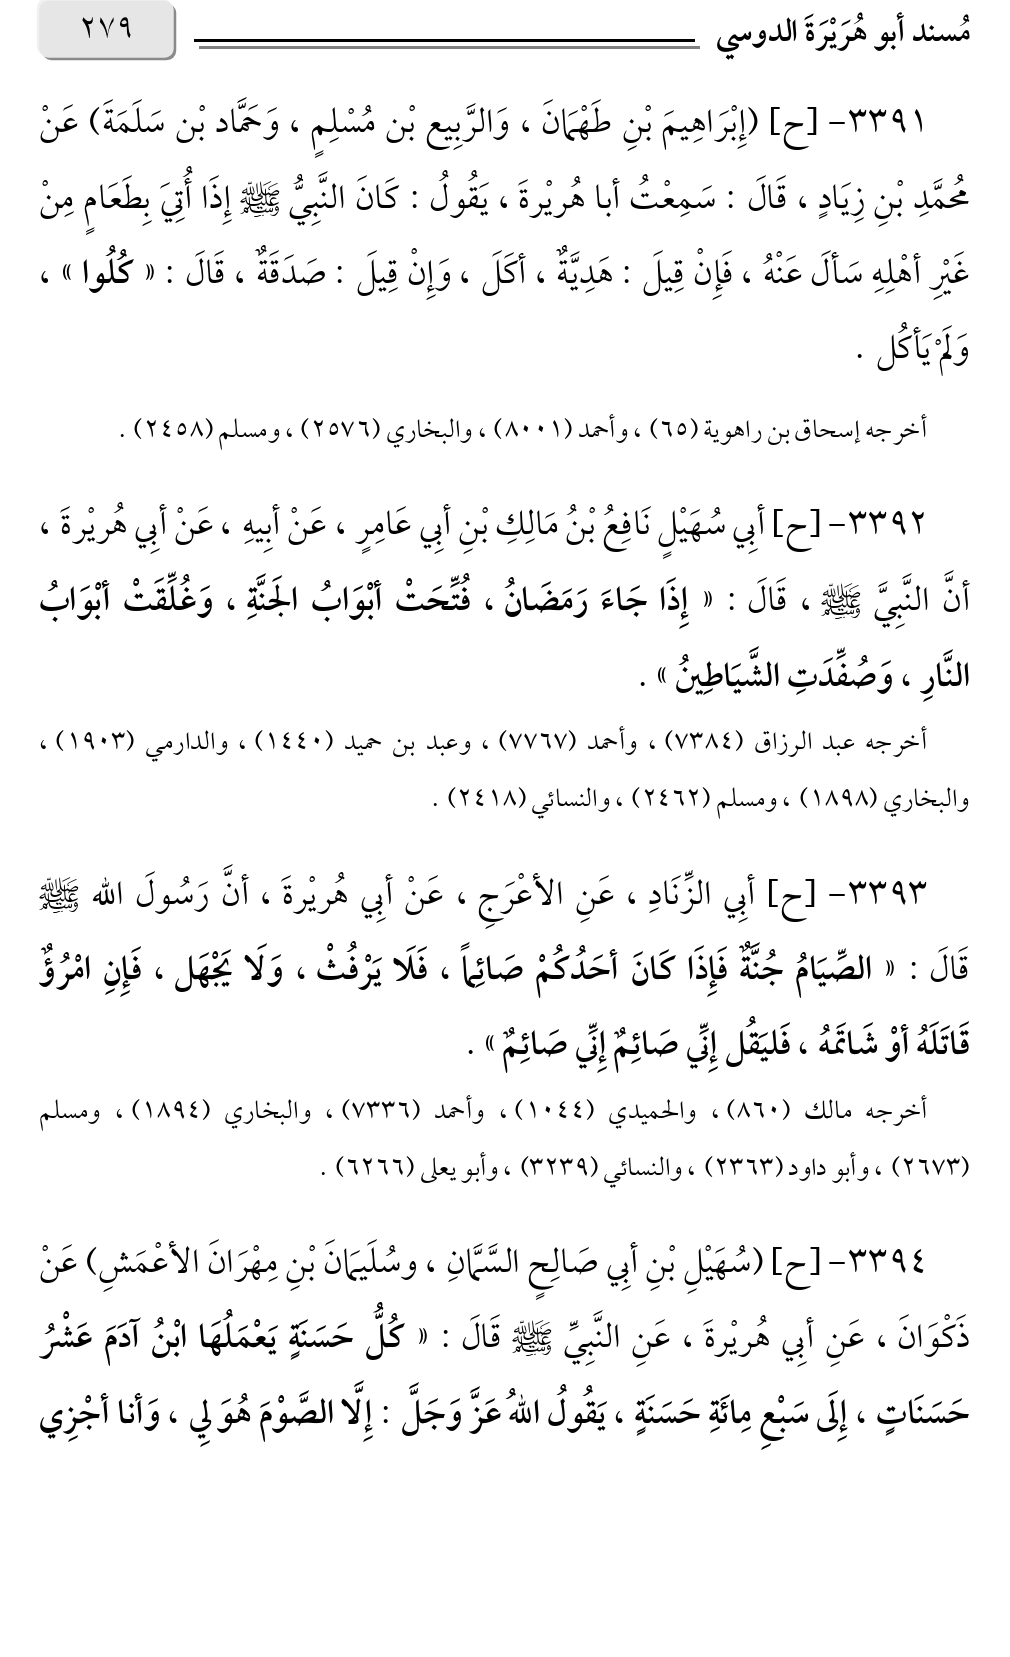 مُسند أبو هُرَيْرَةَ الدوسي
٢٧٩
٣٣٩١- [ح] (إِبْرَاهِيمَ بْنِ طَهْمَانَ ، وَالرَّبِيع بْن مُسْلِمٍ ، وَحَمَّاد بْن سَلَمَةَ) عَنْ
مُحَمَّدِ بْنِ زِيَادٍ ، قَالَ : سَمِعْتُ أبا هُرَيْرةَ ، يَقُولُ : كَانَ النَّبِيُّ ﷺ إِذَا أُتِيَ بِطَعَامٍ مِنْ
غَيْرِ أهْلِهِ سَألَ عَنْهُ ، فَإِنْ قِيلَ : هَدِيَّةٌ ، أكَلَ ، وَإِنْ قِيلَ : صَدَقَةٌ ، قَالَ : « كُلُوا » ،
وَلَمْ يَأكُل .
أخرجه إسحاق بن راهوية (٦٥) ، وأحمد (٨٠٠١) ، والبخاري (٢٥٧٦) ، ومسلم (٢٤٥٨) .
٣٣٩٢- [ح] أبِي سُهَيْلٍ نَافِعُ بْنُ مَالِكِ بْنِ أبِي عَامِرٍ ، عَنْ أبِيهِ ، عَنْ أبِي هُرَيْرةَ ،
أنَّ النَّبِيَّ ﷺ ، قَالَ : « إِذَا جَاءَ رَمَضَانُ ، فُتِّحَتْ أبْوَابُ الجَنَّةِ ، وَغُلِّقَتْ أبْوَابُ
النَّارِ ، وَصُفِّدَتِ الشَّيَاطِينُ » .
أخرجه عبد الرزاق (٧٣٨٤) ، وأحمد (٧٧٦٧) ، وعبد بن حميد (١٤٤٠) ، والدارمي (١٩٠٣) ،
والبخاري (١٨٩٨) ، ومسلم (٢٤٦٢) ، والنسائي (٢٤١٨) .
٣٣٩٣- [ح] أبِي الزِّنَادِ ، عَنِ الأعْرَجِ ، عَنْ أبِي هُرَيْرةَ ، أنَّ رَسُولَ الله ﷺ
قَالَ : « الصِّيَامُ جُنَّةٌ فَإِذَا كَانَ أحَدُكُمْ صَائِماً ، فَلَا يَرْفُثْ ، وَلَا يَجْهَل ، فَإِنِ امْرُؤٌ
قَاتَلَهُ أوْ شَاتَمَهُ ، فَليَقُل إِنِّي صَائِمٌ إِنِّي صَائِمٌ » .
أخرجه مالك (٨٦٠) ، والحميدي (١٠٤٤) ، وأحمد (٧٣٣٦) ، والبخاري (١٨٩٤) ، ومسلم
(٢٦٧٣) ، وأبو داود (٢٣٦٣) ، والنسائي (٣٢٣٩) ، وأبو يعلى (٦٢٦٦) .
٣٣٩٤- [ح] (سُهَيْلِ بْنِ أبِي صَالِحٍ السَّمَّانِ ، وسُلَيمَانَ بْنِ مِهْرَانَ الأعْمَشِ) عَنْ
ذَكْوَانَ ، عَنِ أبِي هُرَيْرةَ ، عَنِ النَّبِيِّ ﷺ قَالَ : « كُلُّ حَسَنَةٍ يَعْمَلُهَا ابْنُ آدَمَ عَشْرُ
حَسَنَاتٍ ، إِلَى سَبْعِ مِائَةِ حَسَنَةٍ ، يَقُولُ اللهُ عَزَّ وَجَلَّ : إِلَّا الصَّوْمَ هُوَ لِي ، وَأنا أجْزِي